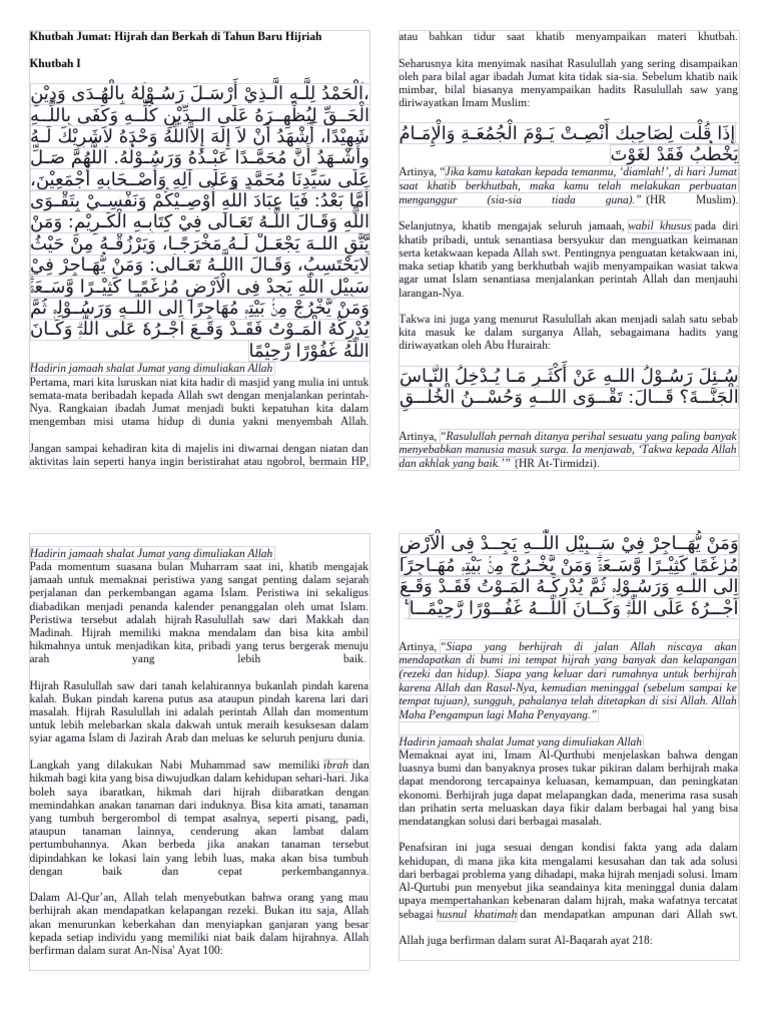 Khutbah Jumat: Hijrah dan Berkah di Tahun Baru Hijriah
Khutbah I
،اَلْحَمْدُ لِلَّـهِ الَّـذِيْ أَرْسَـلَ رَسُـوْلَهُ بِالْهُـدَى وَدِيْنِ
الْحَــقِّ لِيُظْهِــرَهُ عَلَى الــدِّيْنِ كُلِّــهِ وَكَفَى بِاللَّــهِ
شَهِيْدًا، أَشْهَدُ أَنْ لاَ إِلَهَ إِلاَّاللَّهُ وَحْدَهُ لاَشَرِيْكَ لَـهُ
وأَشْـهَدُ أَنَّ مُحَمَّـدًا عَبْـدُهُ وَرَسُـوْلُهُ. اَللَّهُمَّ صَـلِّ
عَلَى سَيِّدِنَا مُحَمَّدٍ وَعَلَى آلِهِ وَأَصْـحَابِهِ أَجْمَعِيْنَ،
أَمَّا بَعْدُ: فَيَا عِبَادَ اللَّهِ أُوْصِـيْكُمْ وَنَفْسِـيْ بِتَقْـوَى
اللَّهِ وَقَالَ اللَّـهُ تَعَـالَى فِيْ كِتَابِـهِ الْكَـرِيْمِ: وَمَنْ
يَّتَّقِ اللـهَ يَجْعَـلْ لَـهُ مَخْرَجًـا، وَيَرْزُقْـهُ مِنْ حَيْثُ
لاَيَحْتَسِبُ، وَقَـالَ االلـهُ تَعَـالَى: وَمَنْ يُّهَـاجِرْ فِيْ
سَبِيْلِ اللّٰهِ يَجِدْ فِى الْاَرْضِ مُرٰغَمًـا كَثِيْـرًا وَّسَـعَةًۗ
وَمَنْ يَّخْرُجْ مِنْۢ بَيْتِهٖ مُهَاجِرًا اِلَى اللّٰـهِ وَرَسُـوْلِهٖ ثُمَّ
يُدْرِكْهُ الْمَـوْتُ فَقَـدْ وَقَـعَ اَجْـرُهٗ عَلَى اللّٰهِۗ وَكَـانَ
اللّٰهُ غَفُوْرًا رَّحِيْمًا
Hadirin jamaah shalat Jumat yang dimuliakan Allah
Pertama, mari kita luruskan niat kita hadir di masjid yang mulia ini untuk
semata-mata beribadah kepada Allah swt dengan menjalankan perintah-
Nya. Rangkaian ibadah Jumat menjadi bukti kepatuhan kita dalam
mengemban misi utama hidup di dunia yakni menyembah Allah.
Jangan sampai kehadiran kita di majelis ini diwarnai dengan niatan dan
aktivitas lain seperti hanya ingin beristirahat atau ngobrol, bermain HP,
atau bahkan tidur saat khatib menyampaikan materi khutbah.
Seharusnya kita menyimak nasihat Rasulullah yang sering disampaikan
oleh para bilal agar ibadah Jumat kita tidak sia-sia. Sebelum khatib naik
mimbar, bilal biasanya menyampaikan hadits Rasulullah saw yang
diriwayatkan Imam Muslim:
إِذَا قُلْت لِصَاحِبِك أَنْصِـتْ يَـوْمَ الْجُمُعَـةِ وَالْإِمَـامُ
يَخْطُبُ فَقَدْ لَغَوْتَ
Artinya, “Jika kamu katakan kepada temanmu, ‘diamlah!’, di hari Jumat
saat khatib berkhutbah, maka kamu telah melakukan perbuatan
menganggur (sia-sia tiada guna).” (HR Muslim).
Selanjutnya, khatib mengajak seluruh jamaah, wabil khusus pada diri
khatib pribadi, untuk senantiasa bersyukur dan menguatkan keimanan
serta ketakwaan kepada Allah swt. Pentingnya penguatan ketakwaan ini,
maka setiap khatib yang berkhutbah wajib menyampaikan wasiat takwa
agar umat Islam senantiasa menjalankan perintah Allah dan menjauhi
larangan-Nya.
Takwa ini juga yang menurut Rasulullah akan menjadi salah satu sebab
kita masuk ke dalam surganya Allah, sebagaimana hadits yang
diriwayatkan oleh Abu Hurairah:
سُـئِلَ رَسُـوْلُ اللـهِ عَنْ أَكْثَـرِ مَـا يُـدْخِلُ النَّـاسَ
الْجَنَّــةَ؟ قَــالَ: تَقْــوَى اللــهِ وَحُسْــنُ الْخُلُــقِ
Artinya, “Rasulullah pernah ditanya perihal sesuatu yang paling banyak
menyebabkan manusia masuk surga. Ia menjawab, ‘Takwa kepada Allah
dan akhlak yang baik.’” (HR At-Tirmidzi).
Hadirin jamaah shalat Jumat yang dimuliakan Allah
Pada momentum suasana bulan Muharram saat ini, khatib mengajak
jamaah untuk memaknai peristiwa yang sangat penting dalam sejarah
perjalanan dan perkembangan agama Islam. Peristiwa ini sekaligus
diabadikan menjadi penanda kalender penanggalan oleh umat Islam.
Peristiwa tersebut adalah hijrah Rasulullah saw dari Makkah dan
Madinah. Hijrah memiliki makna mendalam dan bisa kita ambil
hikmahnya untuk menjadikan kita, pribadi yang terus bergerak menuju
arah yang lebih baik.
Hijrah Rasulullah saw dari tanah kelahirannya bukanlah pindah karena
kalah. Bukan pindah karena putus asa ataupun pindah karena lari dari
masalah. Hijrah Rasulullah ini adalah perintah Allah dan momentum
untuk lebih melebarkan skala dakwah untuk meraih kesuksesan dalam
syiar agama Islam di Jazirah Arab dan meluas ke seluruh penjuru dunia.
Langkah yang dilakukan Nabi Muhammad saw memiliki ibrah dan
hikmah bagi kita yang bisa diwujudkan dalam kehidupan sehari-hari. Jika
boleh saya ibaratkan, hikmah dari hijrah diibaratkan dengan
memindahkan anakan tanaman dari induknya. Bisa kita amati, tanaman
yang tumbuh bergerombol di tempat asalnya, seperti pisang, padi,
ataupun tanaman lainnya, cenderung akan lambat dalam
pertumbuhannya. Akan berbeda jika anakan tanaman tersebut
dipindahkan ke lokasi lain yang lebih luas, maka akan bisa tumbuh
dengan baik dan cepat perkembangannya.
Dalam Al-Qur’an, Allah telah menyebutkan bahwa orang yang mau
berhijrah akan mendapatkan kelapangan rezeki. Bukan itu saja, Allah
akan menurunkan keberkahan dan menyiapkan ganjaran yang besar
kepada setiap individu yang memiliki niat baik dalam hijrahnya. Allah
berfirman dalam surat An-Nisa' Ayat 100:
وَمَنْ يُّهَــاجِرْ فِيْ سَــبِيْلِ اللّٰــهِ يَجِــدْ فِى الْاَرْضِ
مُرٰغَمًـا كَثِيْـرًا وَّسَـعَةًۗ وَمَنْ يَّخْـرُجْ مِنْۢ بَيْتِهٖ مُهَـاجِـرًا
اِلَى اللّٰـهِ وَرَسُـوْلِهٖ ثُمَّ يُدْرِكْـهُ الْمَـوْتُ فَقَـدْ وَقَـعَ
اَجْــرُهٗ عَلَى اللّٰهِۗ وَكَــانَ اللّٰــهُ غَفُــوْرًا رَّحِيْمًــا ࣖ
Artinya, “Siapa yang berhijrah di jalan Allah niscaya akan
mendapatkan di bumi ini tempat hijrah yang banyak dan kelapangan
(rezeki dan hidup). Siapa yang keluar dari rumahnya untuk berhijrah
karena Allah dan Rasul-Nya, kemudian meninggal (sebelum sampai ke
tempat tujuan), sungguh, pahalanya telah ditetapkan di sisi Allah. Allah
Maha Pengampun lagi Maha Penyayang.”
Hadirin jamaah shalat Jumat yang dimuliakan Allah
Memaknai ayat ini, Imam Al-Qurthubi menjelaskan bahwa dengan
luasnya bumi dan banyaknya proses tukar pikiran dalam berhijrah maka
dapat mendorong tercapainya keluasan, kemampuan, dan peningkatan
ekonomi. Berhijrah juga dapat melapangkan dada, menerima rasa susah
dan prihatin serta meluaskan daya fikir dalam berbagai hal yang bisa
mendatangkan solusi dari berbagai masalah.
Penafsiran ini juga sesuai dengan kondisi fakta yang ada dalam
kehidupan, di mana jika kita mengalami kesusahan dan tak ada solusi
dari berbagai problema yang dihadapi, maka hijrah menjadi solusi. Imam
Al-Qurtubi pun menyebut jika seandainya kita meninggal dunia dalam
upaya mempertahankan kebenaran dalam hijrah, maka wafatnya tercatat
sebagai husnul khatimah dan mendapatkan ampunan dari Allah swt.
Allah juga berfirman dalam surat Al-Baqarah ayat 218: